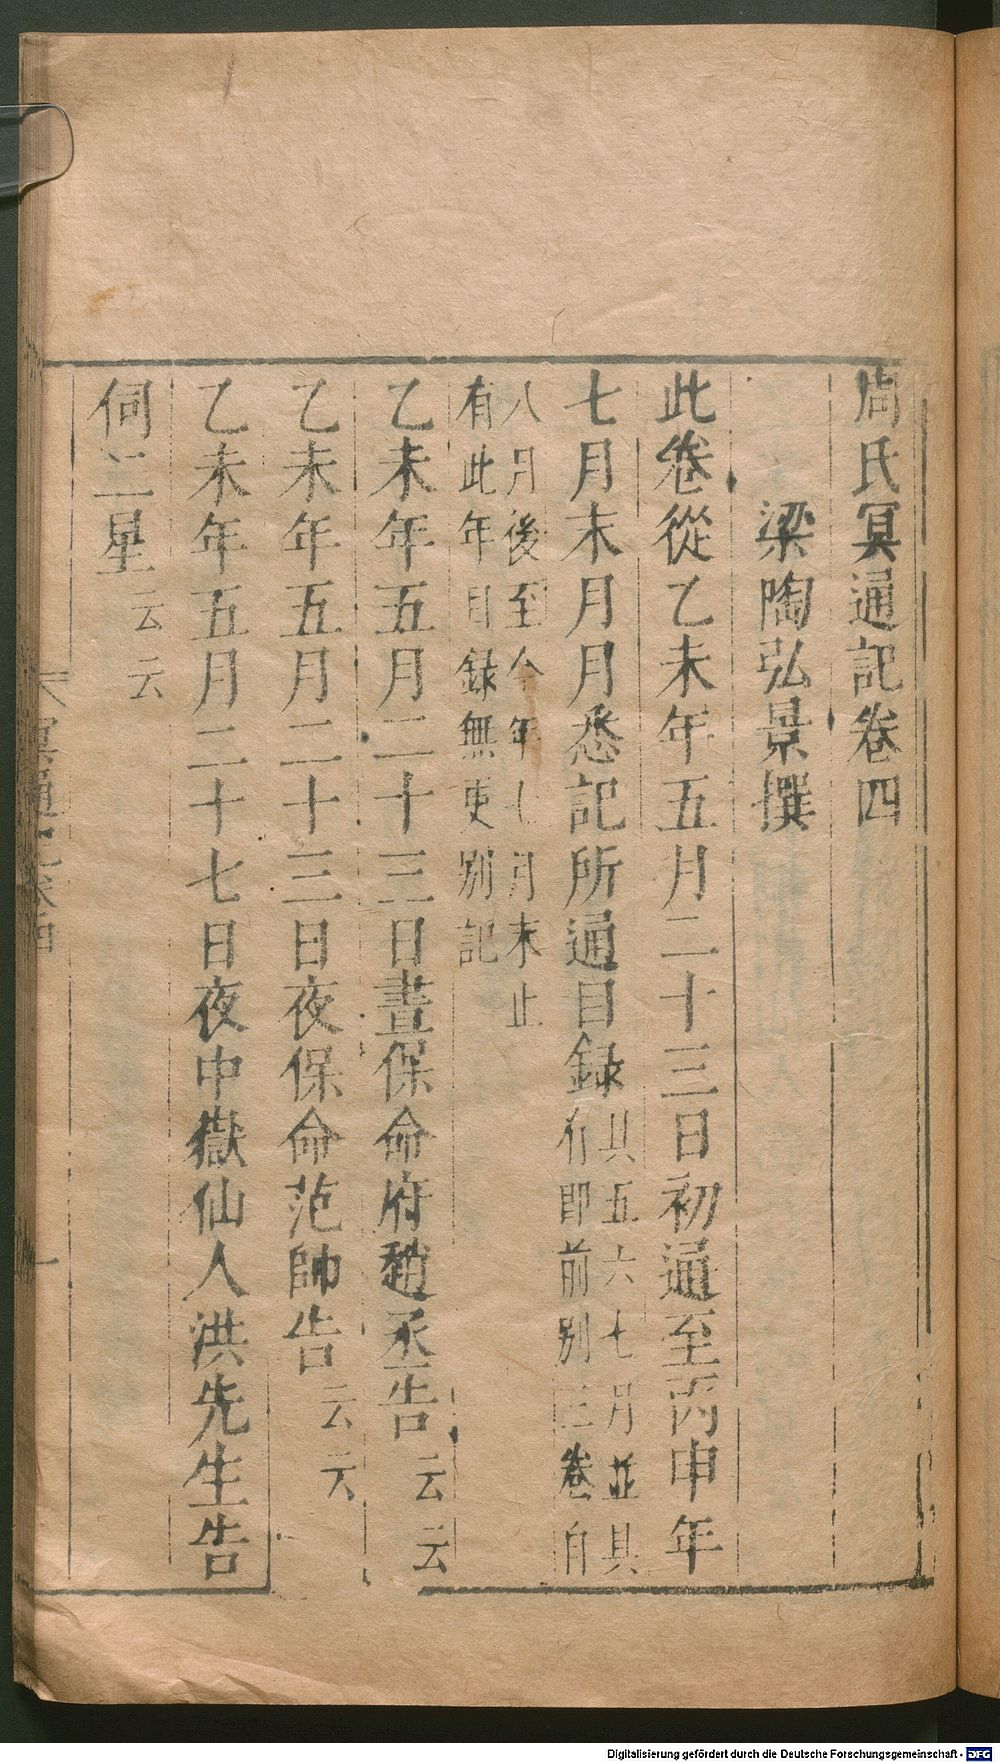 周氏冥通記卷四
梁陶弘景撰
此卷從乙未年五月二十三日初通至丙申年
七月末月月悉記所通目録
其五六七月並具
行即前別三卷自
八月後至今年七月末止
有此年目録無更別記
乙未年五月二十三日晝保命府趙丞告云云
乙未年五月二十三日夜保命范帥告云云
乙未年五月二十七日夜中嶽仙人洪先生告
伺二星云云
冥通記卷四
一
Digitalisierung gefördert durch die Deutsche Forschungsgemeinschaft - DFG